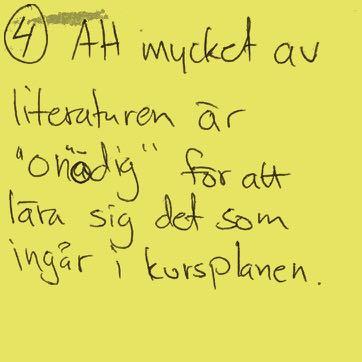 ④ Att mycket av
literaturen är
"onödig" för att
lära sig det som
ingår i kursplanen.